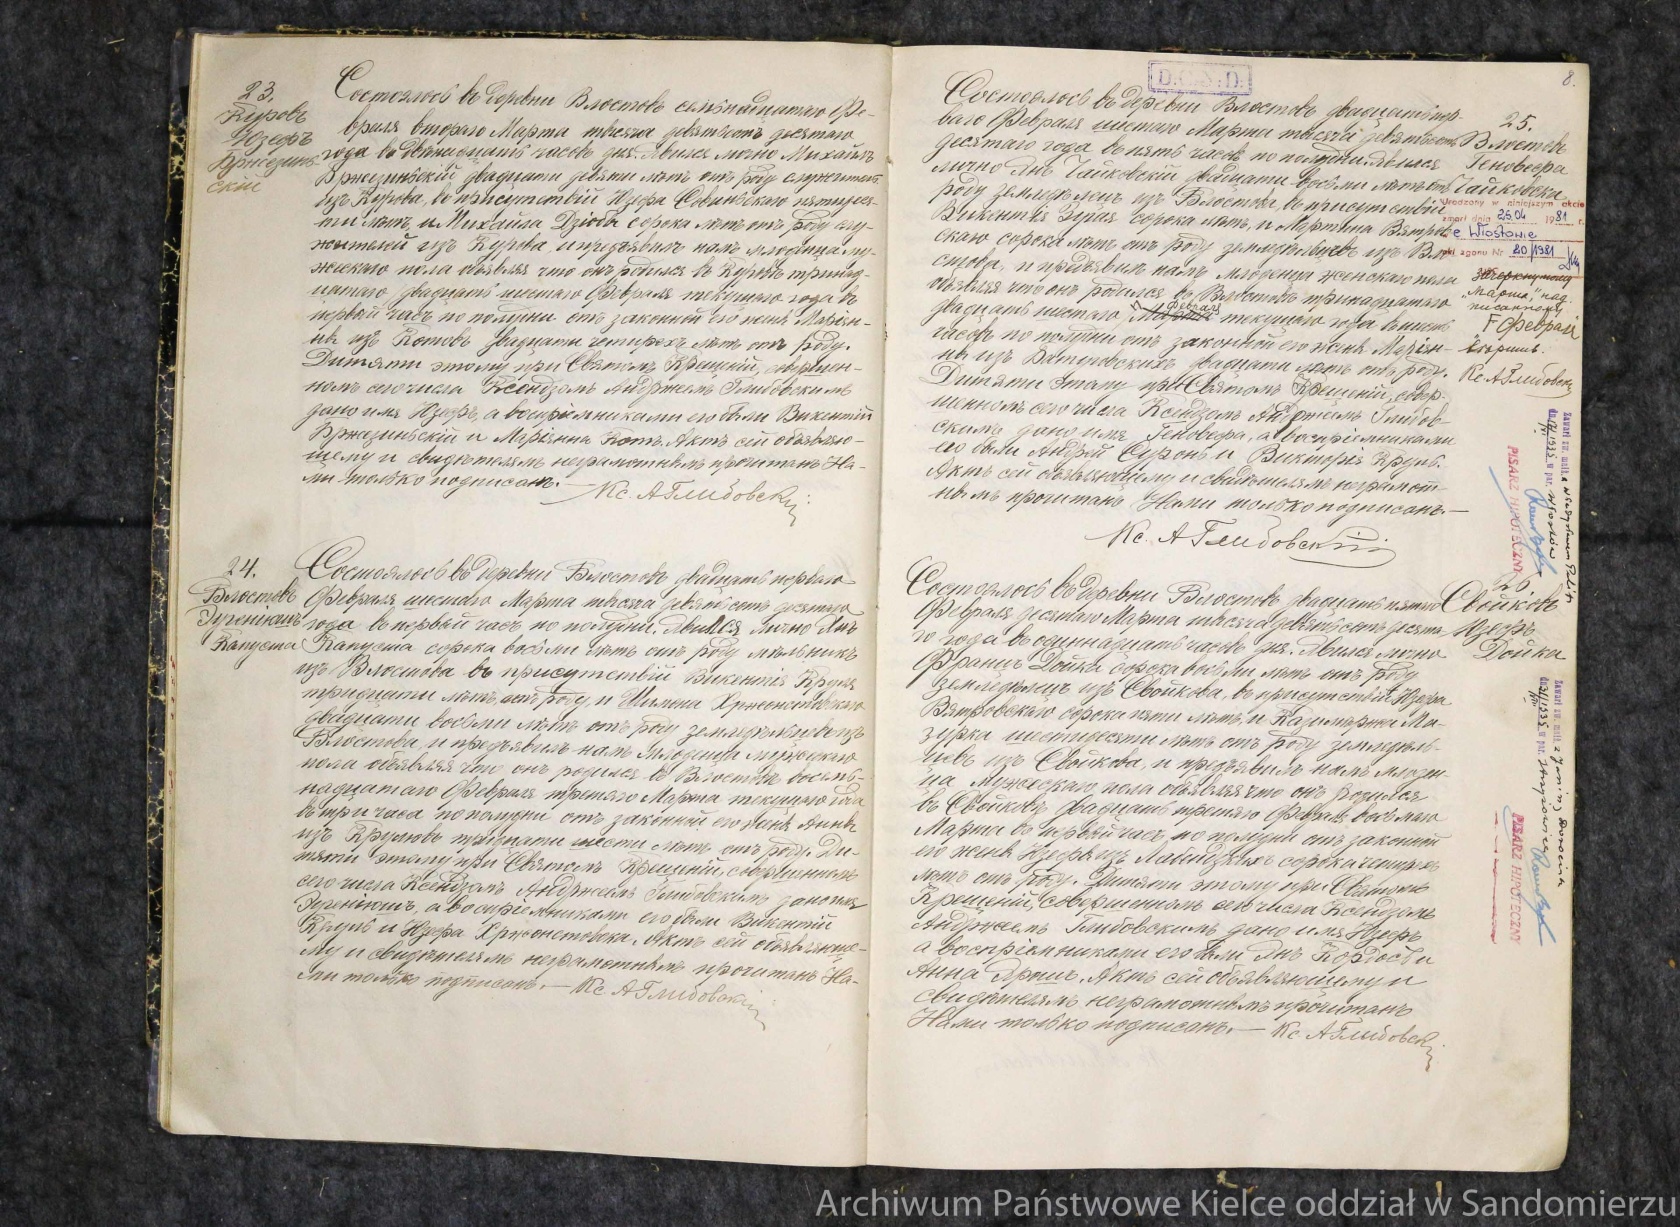 23.
Куровъ
Юзефъ
Бржезин-
скій
Состоялось въ деревни Влостовъ семьнадцатаго Фе-
враля втораго Марта тысяча девятьсотъ десятаго
года въ двенадцать часовъ дня. Явился лично Михаилъ
Бржезинскій двадцати девяти лѣтъ отъ роду служитель
изъ Курова, въ присутствіи Юзефа пятидеся-
ти лѣтъ, и Михаила Дзюба сорока лѣтъ отъ роду слу-
жителей изъ Курова и предъявилъ намъ младенца му-
жескаго пола объявляя что онъ родился въ Куровѣ тринад-
цатаго двадцать шестаго Февраля текущаго года въ
первый часъ по полудни отъ законной его жены Маріян-
ны изъ Котовъ двадцати четырехъ лѣтъ отъ роду.
Дитяти этому при Святомъ Крещеніи, совершен-
номъ сего числа Ксендзомъ Андржеемъ Глибовскимъ
дано имя Юзефъ, а воспріемниками его были Викентій
Бржезинскій и Маріянна Котъ. Актъ сей объявляю-
щему и свидѣтелямъ неграмотнымъ прочитанъ На-
ми только подписанъ. — Кс. А Глибовскій
24.
Влостовъ
Эугеніюшъ
Капуста
Состоялось въ деревни Влостовъ двадцать перваго
Февраля шестаго Марта тысяча девятьсотъ десятаго
года въ первый часъ по полудни. Явился лично Янъ
Капуста сорока восьми лѣтъ отъ роду мѣльникъ
изъ Влостова въ присутствіи Викентія Круля
тридцати лѣтъ отъ роду, и Шимона Хржонстовскаго
двадцати восьми лѣтъ отъ роду земледѣльцовъ изъ
Влостова, и предъявилъ намъ младенца мужескаго
пола объявляя что онъ родился въ Влостовѣ восемь-
надцатаго Февраля третяго Марта текущаго года
въ три часа по полудни отъ законной его жены Анны
изъ тридцати шести лѣтъ отъ роду. Ди-
тяти этому при Святомъ Крещеніи, совершенномъ
сего числа Ксендзомъ Андржеемъ Глибовскимъ дано имя
Эугеніюшъ, а воспріемниками его были Викентій
Круль и Юзефа Хржонстовска. Актъ сей объявляюще-
му и свидѣтелямъ неграмотнымъ прочитанъ На-
ми только подписанъ. — Кс А Глибовскій
D.C.N.D.
8.
Состоялось въ деревни Влостовъ двадцать пер-
ваго Февраля шестаго Марта тысяча девятьсотъ
десятаго года въ пять часовъ по полудни. Явился
лично Янъ Чайковскій двадцати восьми лѣтъ отъ
роду земледѣлецъ изъ Влостова, въ присутствіи
Викентія сорока лѣтъ, и Мартина Вятров-
скаго сорока лѣтъ отъ роду земледѣльцовъ изъ Вло-
стова, и предъявилъ намъ младенца женскаго пола
объявляя что онъ родился въ Влостовѣ тринадцатаго
двадцать шестаго Марта Февраля текущаго года въ шесть
часовъ по полудни отъ законной его жены Маріян-
ны изъ двадцати лѣтъ отъ роду.
Дитяти этому при Святомъ Крещеніи, совер-
шенномъ сего числа Ксендзомъ Андржеемъ Глибов-
скимъ дано имя Геновефа, а воспріемниками
его были Андрей и Викторія Круль.
Актъ сей объявляющему и свидѣтелямъ неграмот-
нымъ прочитанъ Нами только подписанъ. —
Кс. А Глибовскій
25.
Влостовъ
Геновефа
Чайковска
Urodzony w niniejszym akcie
zmarł dnia 25.04 1981 r.
we Włostowie
akt zgonu Nr 20/1981
зачеркнутому
„Марта," над-
писанному
Г Февраля
вѣримъ.
Кс. А Глибовскій
Zawarł zw. małż. z Władysławem
w par. Włostów
PISARZ HIPOTECZNY
26.
Свойковъ
Юзефъ
Дойка
Состоялось въ деревни Влостовъ двадцать пятаго
Февраля десятаго Марта тысяча девятьсотъ десята-
го года въ одиннадцать часовъ дня. Явился лично
Францъ Дойка сорока восьми лѣтъ отъ роду
земледѣлецъ изъ Свойкова, въ присутствіи Юзефа
Вятровскаго сорока пяти лѣтъ, и Казимержа Ма-
зурка шестидесяти лѣтъ отъ роду земледѣль-
цевъ изъ Свойкова, и предъявилъ намъ младен-
ца мужескаго пола объявляя что онъ родился
въ Свойковѣ двадцать третяго Февраля восьмаго
Марта въ первый часъ по полудни отъ законной
его жены Юзефы изъ сорока четырехъ
лѣтъ отъ роду. Дитяти этому при Святомъ
Крещеніи, совершенномъ сего числа Ксендзомъ
Андржеемъ Глибовскимъ дано имя Юзефъ
а воспріемниками его были Янъ и
Анна Ярошъ. Актъ сей объявляющему и
свидѣтелямъ неграмотнымъ прочитанъ
Нами только подписанъ. — Кс А Глибовскій
Zawarł zw. małż. z Janiną
w par.
PISARZ HIPOTECZNY
Archiwum Państwowe Kielce oddział w Sandomierzu